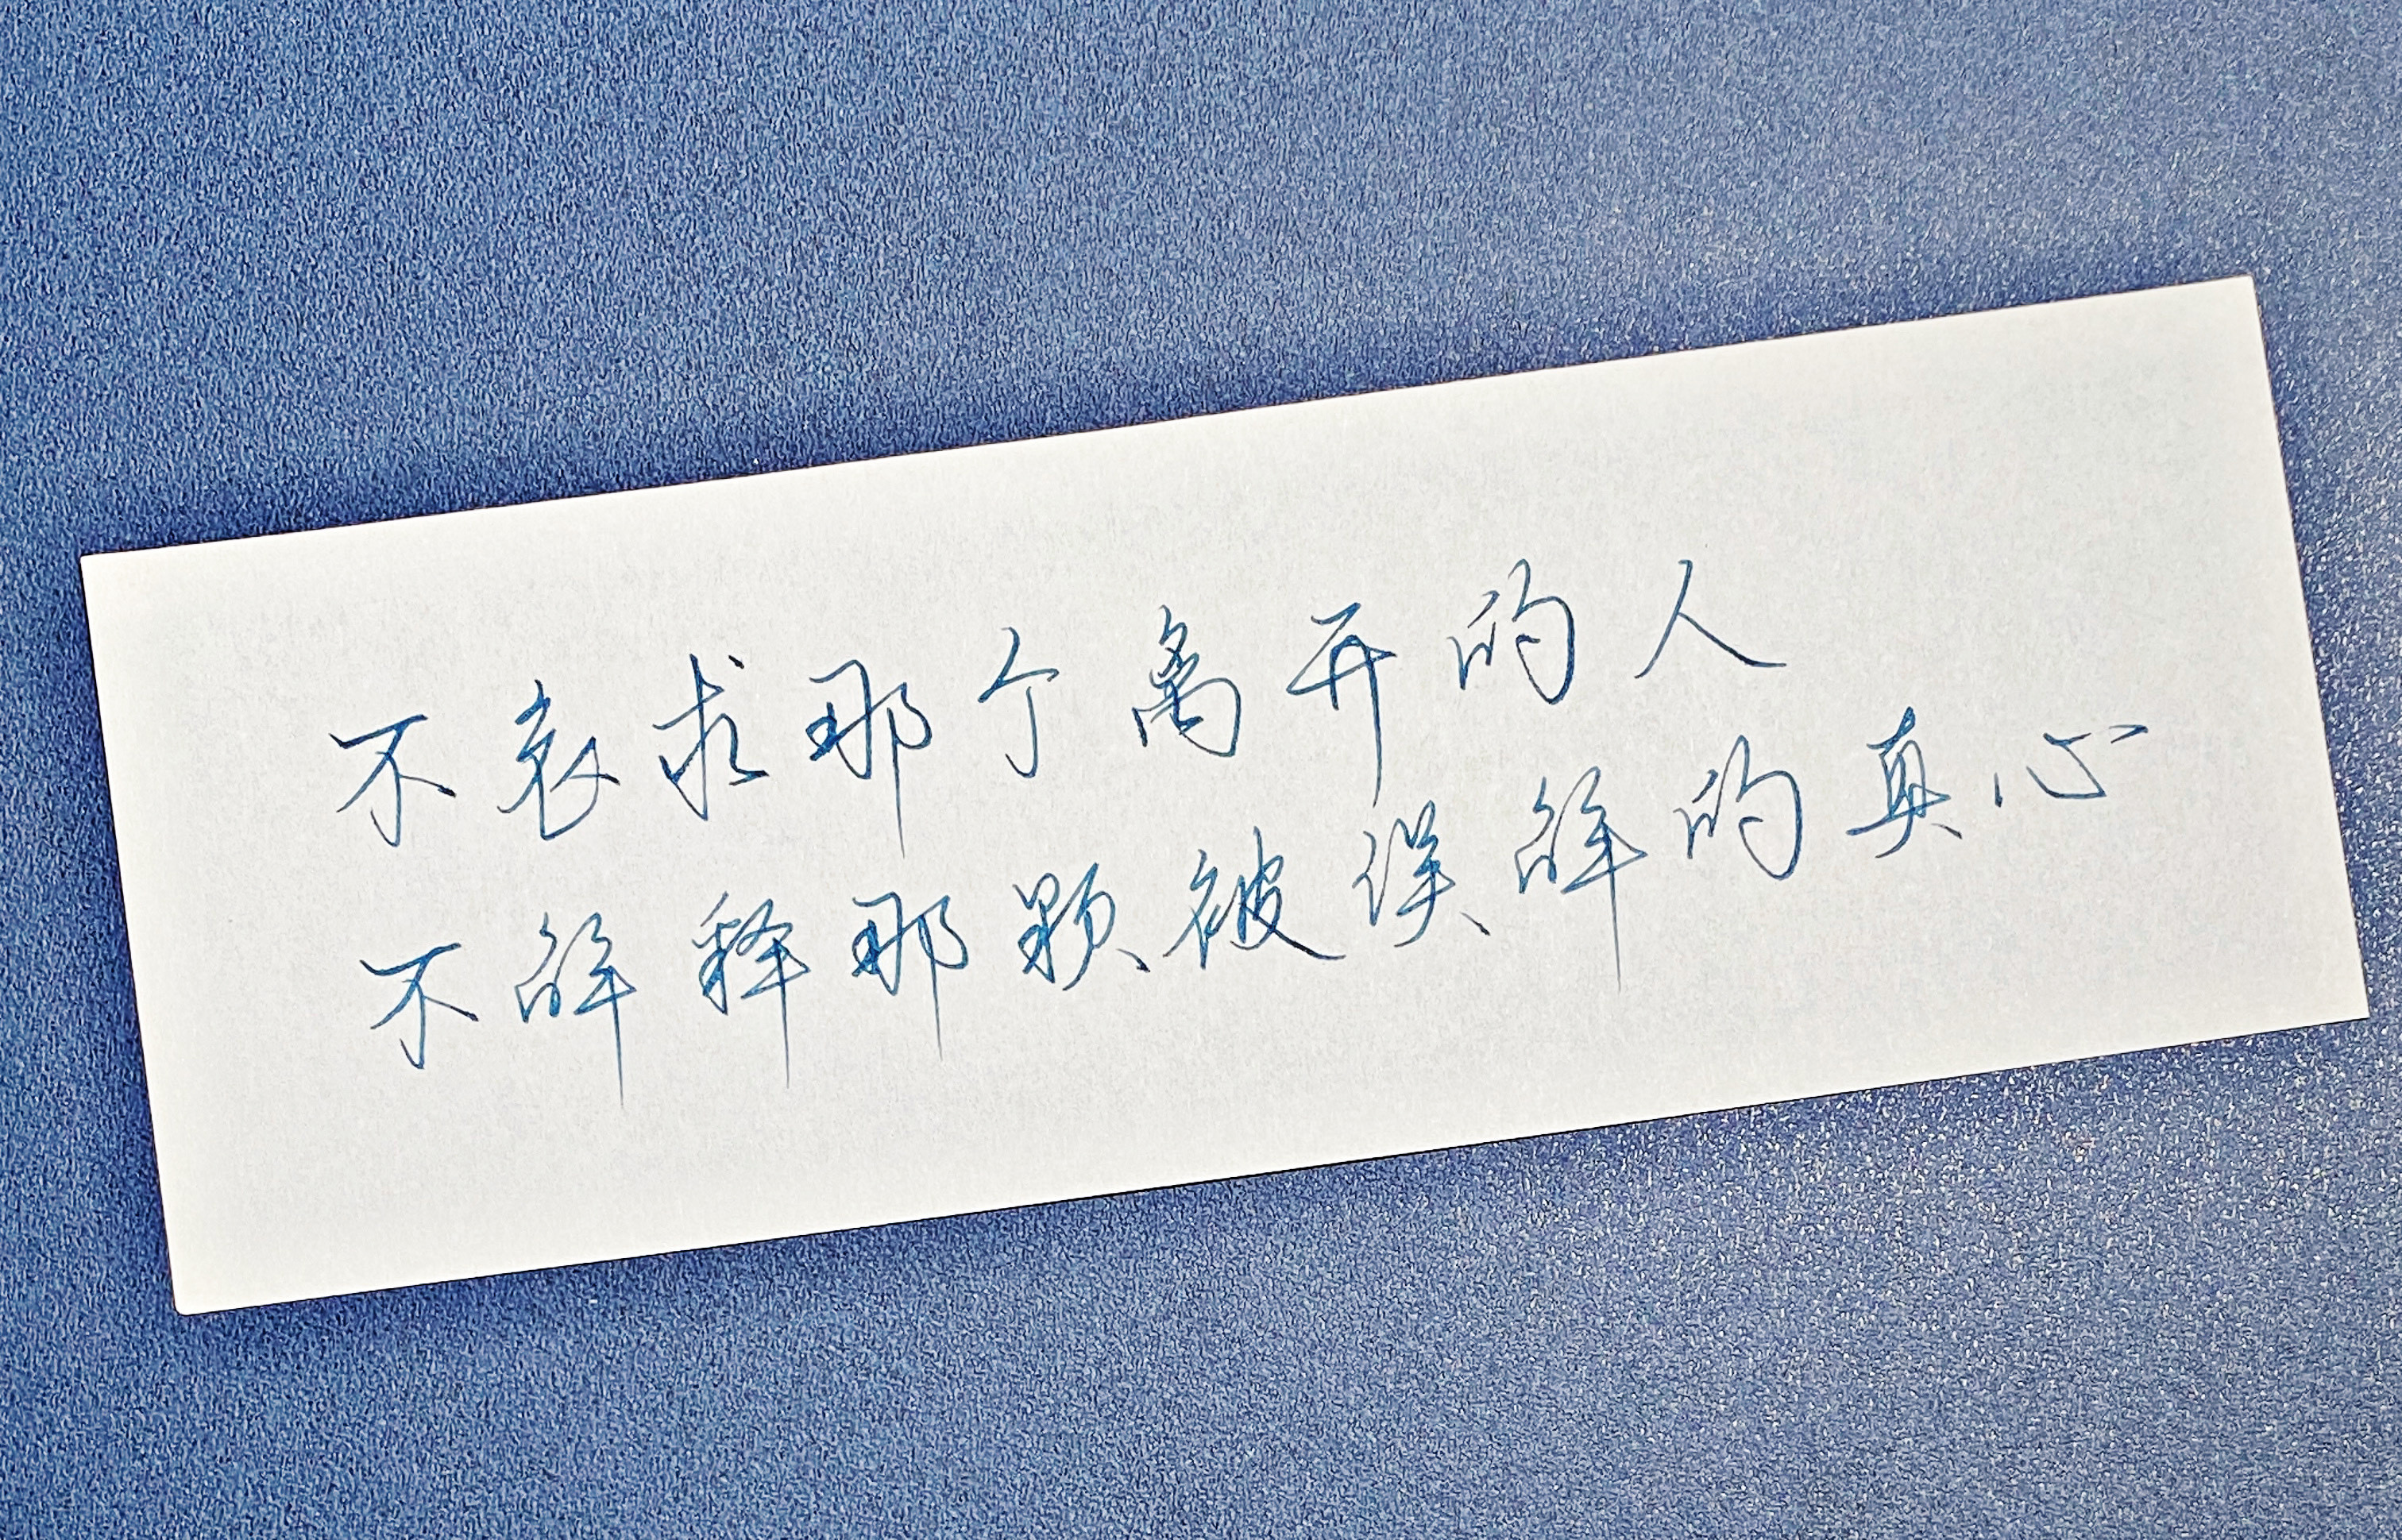 不哀求那个离开的人
不解释那颗被误解的真心